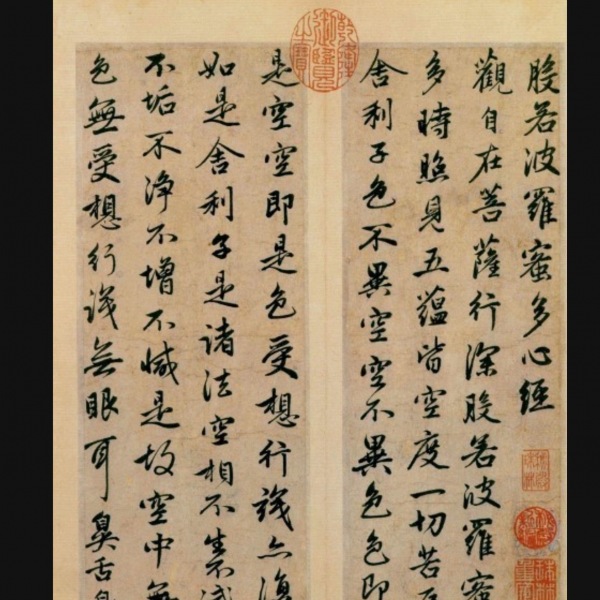 般若波羅蜜多心經
觀自在菩薩行深般若波羅蜜
多時照見五蘊皆空度一切苦
舍利子色不異空空不異色色即
是空空即是色受想行識亦復
如是舍利子是諸法空相不生不滅
不垢不淨不增不減是故空中無
色無受想行識無眼耳鼻舌